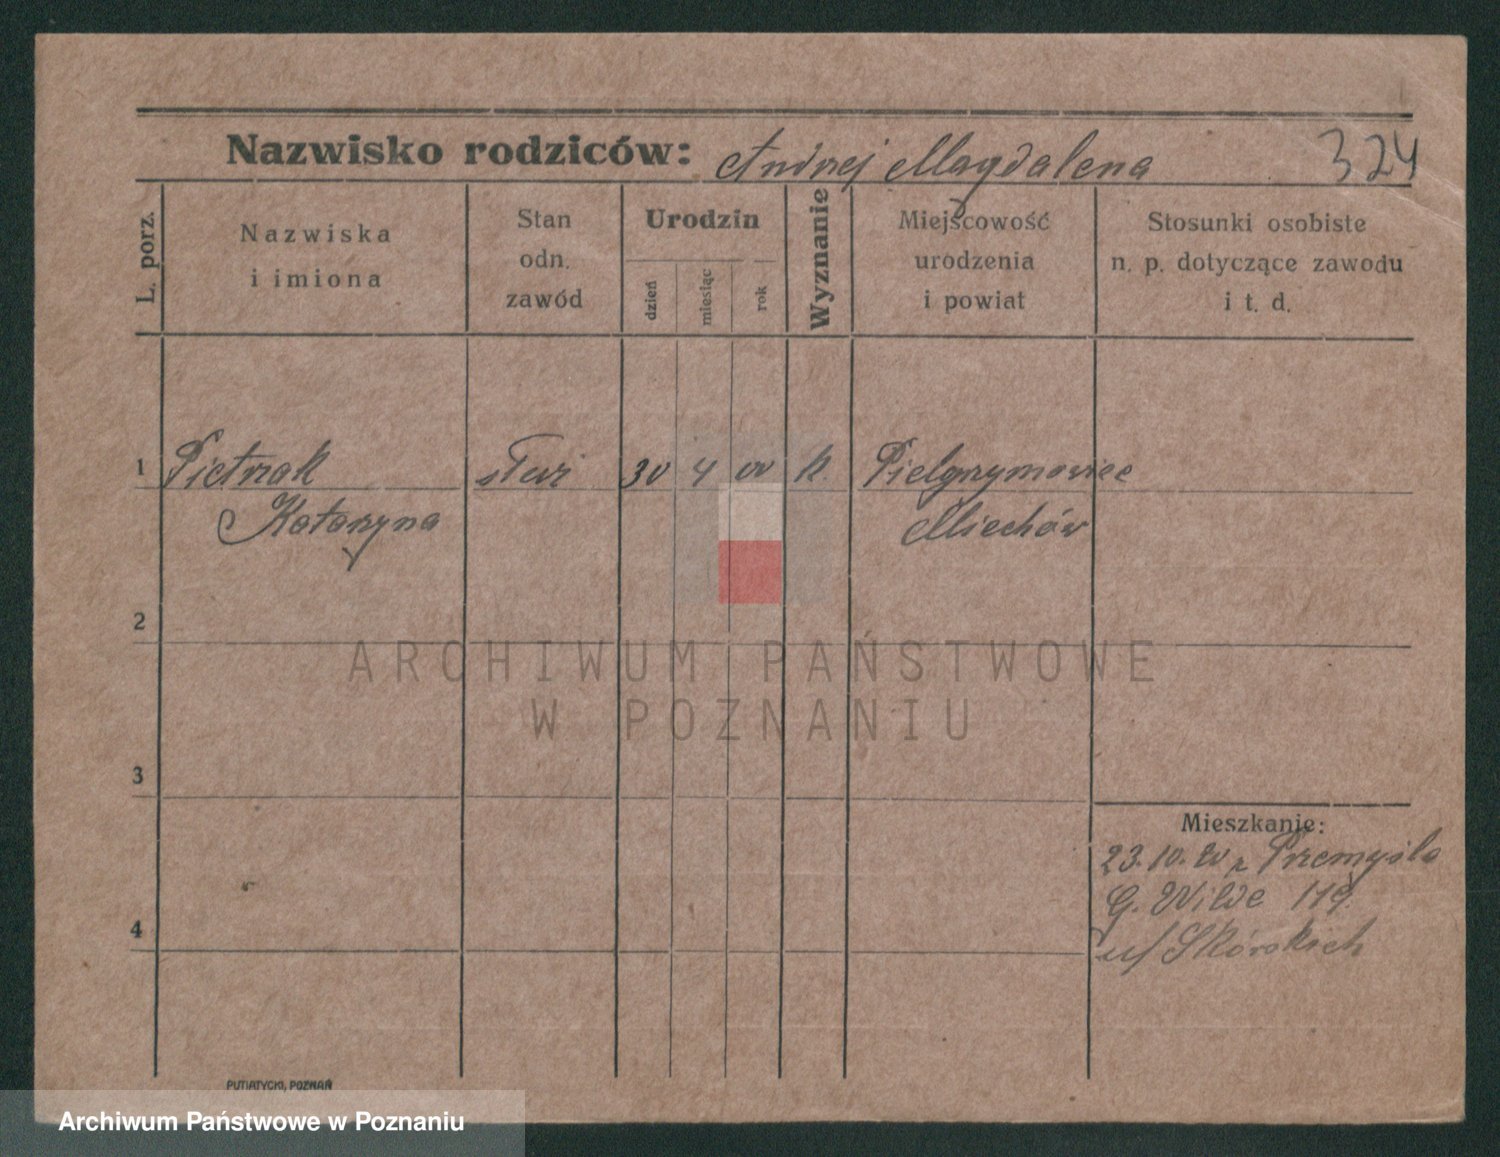 Nazwisko rodziców: Andrzej Magdalena 324
L. porz.
Nazwiska
i imiona
Stan
odn.
zawód
Urodzin
dzień
miesiąc
rok
Wyznanie
Miejscowość
urodzenia
i powiat
Stosunki osobiste
n. p. dotyczące zawodu
i t. d.
1 Pietrzak 30 4 00 k. Pielgrzymowice
Katarzyna Miechów
2
ARCHIWUM PAŃSTWOWE
W POZNANIU
3
Mieszkanie:
23.10.20 z Przemysła
G. Wilde 119.
u/ Skórskich
4
PUTIATYCKI, POZNAŃ
Archiwum Państwowe w Poznaniu